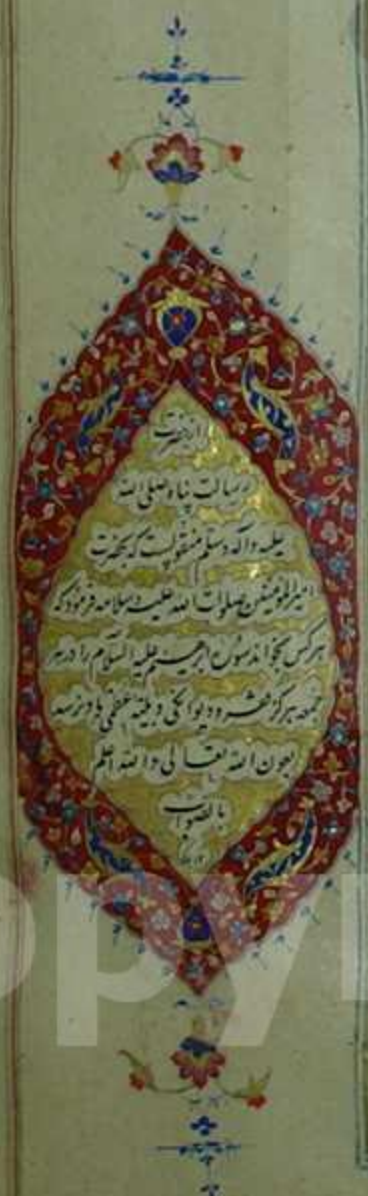 از حضرت
رسالت پناه صلی الله
علیه و آله و سلم منقولست که بحضرت
امیرالمومنین صلوات الله علیه و سلامه فرمود که
هرکس بخواند سوره ابرهیم علیه السلام را در هر
جمعه هرگز فقر و دیوانگی و بلیّه عظمی باو نرسد
بعون الله تعالی والله اعلم
بالصواب